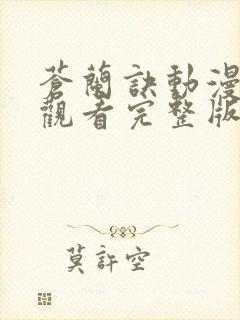 蒼蘭訣動漫
觀看完整版
莫許空